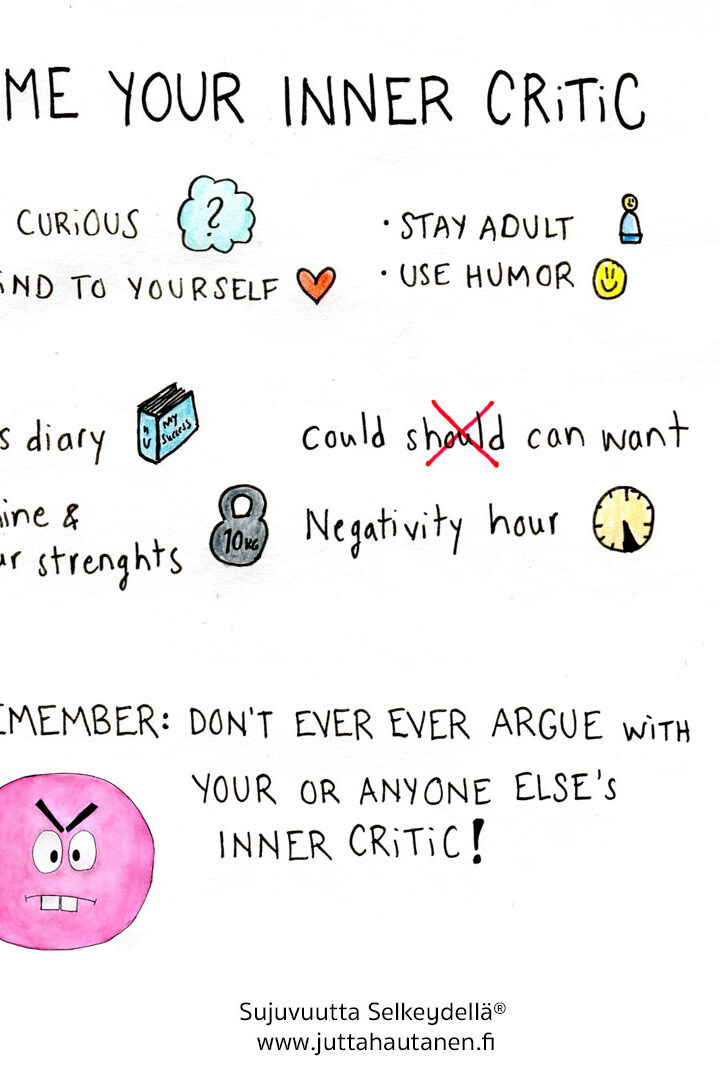 ME YOUR INNER CRiTiC
CURiOUS ?
· STAY ADULT
iND TO YOURSELF
· USE HUMOR
s diary
My Success
could should can want
ine &
ur strenghts
10 KG
Negativity hour
EMEMBER: DON'T EVER EVER ARGUE WiTH
YOUR OR ANYONE ELSE's
INNER CRiTiC!
Sujuvuutta Selkeydellä®
www.juttahautanen.fi